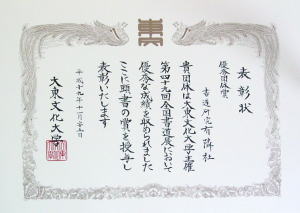 表彰状
優秀団体賞
書道研究有隣社
貴団体は大東文化大学主催
第四十九回全国書道展において
優秀な成績を収められました
ここに頭書の賞を授与し
表彰いたします
平成十九年十一月二十五日
大東文化大学